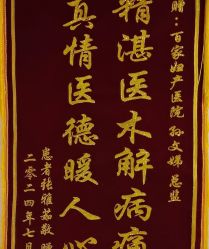 赠：百家妇产医院 孙文娣 总监
精湛医术解病痛
真情医德暖人心
患者张雅茹敬赠
二零二四年七月